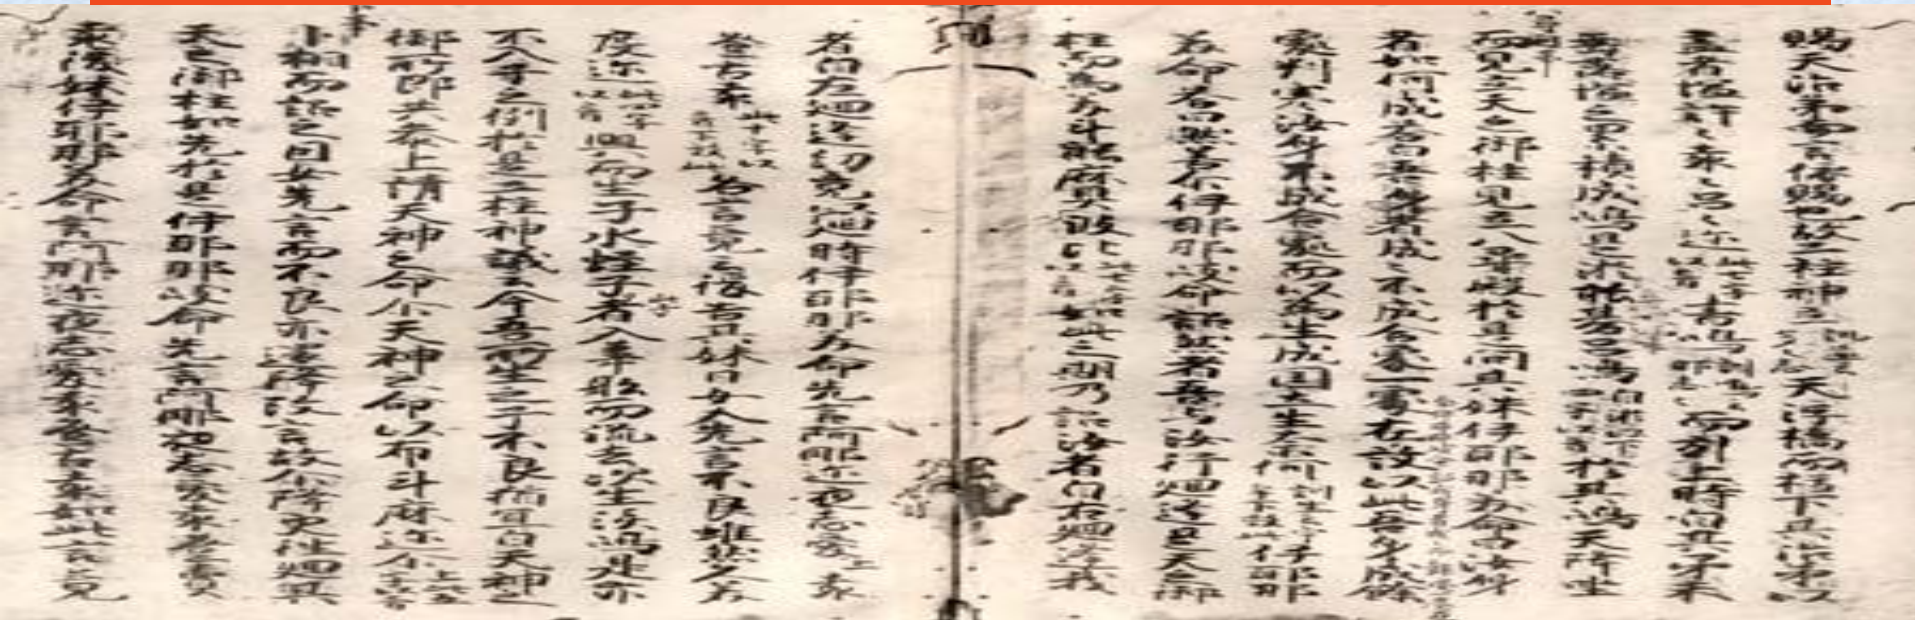 賜天沼矛而言依賜也故二柱神立訓立云多々志天浮橋而指下其沼矛以
畫者塩許々袁々呂々迩此七字以音畫鳴訓鳴云那志々而引上時自其矛末
垂落塩之累積成嶋是淤能碁呂嶋自淤以下四字以音於其嶋天降坐
而見立天之御柱見立八尋殿於是問其妹伊耶那美命曰汝身
者如何成答曰吾身者成々不成合處一處在故以此吾身成餘
處刺塞汝身不成合處而以為生成国土生奈何訓生云宇牟下效此伊耶那
美命答曰然善尓伊耶那岐命詔然者吾与汝行廻逢是天之御
柱而為美斗能麻具波比此七字以音如此之期乃詔汝者自右廻逢我
者自左廻逢約竟廻時伊耶那美命先言阿那迩夜志愛上袁
登古袁此十字以音下效此各言竟之後告其妹曰女人先言不良雖然久美
度迩此四字以音興而生子水蛭子者入葦船而流去次生淡嶋是亦
不入子之例於是二柱神議云今吾所生之子不良猶宜白天神之
御所即共参上請天神之命尓天神之命以布斗麻迩尓上此五字以音
卜相而詔之因女先言而不良亦還降改言故尓降更往廻其
天之御柱如先於是伊耶那岐命先言阿那迩夜志愛袁登賣
袁後妹伊耶那美命言阿那迩夜志愛袁登古袁如此言竟